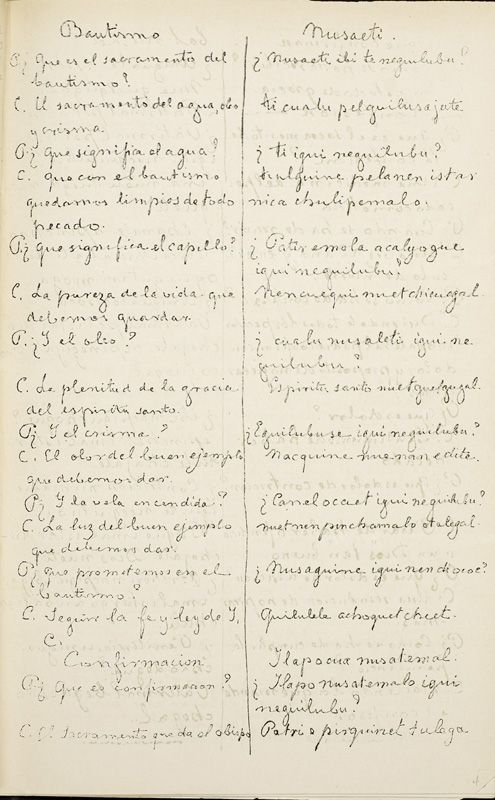 Bautismo
P. ¿Que es el sacramento del
bautismo?
C. El sacramento del agua, oleo
y crisma.
P. ¿Que significa el agua?
C. que con el bautismo
quedamos limpios de todo
pecado.
P. ¿que significa el capillo?
C. La pureza de la vida que
debemos guardar.
P. ¿Y el oleo?
C. La plenitud de la gracia
del espiritu santo.
P. ¿Y el crisma?
C. El olor del buen ejemplo
que debemos dar.
P. ¿Y la vela encendida?
C. La luz del buen ejemplo
que debemos dar.
P. ¿que prometemos en el
bautismo?
C. Seguir la fe y ley de J.
C.
Confirmacion
P. ¿Que es confirmacion?
C. El sacramento que da el obispo
Nusaeti.
¿Nusaeti ibi te neguilubu?
ti cualu pelguilusajute
¿ti iqui neguilubu?
pelanen istar
nica chulipemalo.
¿Patir emola acalyogue
iqui neguilubu?
nuet chicucgal.
¿cualu nusaleti iqui ne
guilubu?
Espiritu santo nuet guelgugal.
¿Eguilubuse iqui neguilubu?
Nacquine nue nan edita.
¿Canel occaet iqui neguilubu?
nuet nen pinchamalo otalegal.
¿Nusaguine iqui nendiococ?
Quilulele achoquet cheet.
Ilapocua nusatemal.
¿Ilapo nusatemalo iqui
neguilubu?
Patri o pirguinet tulaga